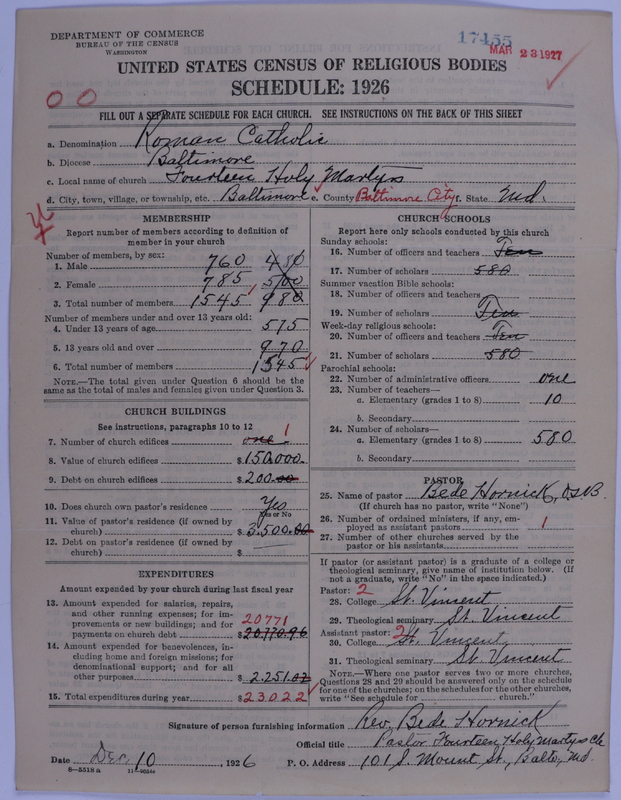 DEPARTMENT OF COMMERCE
BUREAU OF THE CENSUS
WASHINGTON
17455
MAR 23 1927
UNITED STATES CENSUS OF RELIGIOUS BODIES
SCHEDULE: 1926
0 0
FILL OUT A SEPARATE SCHEDULE FOR EACH CHURCH. SEE INSTRUCTIONS ON THE BACK OF THIS SHEET
a. Denomination Roman Catholic
b. Diocese Baltimore
c. Local name of church Fourteen Holy Martyrs
d. City, town, village, or township, etc. Baltimore e. County Baltimore City f. State Md.
MEMBERSHIP
Report number of members according to definition of
member in your church
Number of members, by sex:
1. Male 760 480
2. Female 785 500
3. Total number of members 1545 980
Number of members under and over 13 years old:
4. Under 13 years of age 575
5. 13 years old and over 970
6. Total number of members 1545
NOTE.—The total given under Question 6 should be the
same as the total of males and females given under Question 3.
CHURCH BUILDINGS
See instructions, paragraphs 10 to 12
7. Number of church edifices one 1
8. Value of church edifices $150.000.
9. Debt on church edifices $200.00
10. Does church own pastor's residence Yes
Yes or No
11. Value of pastor's residence (if owned by
church) $3.500.00
12. Debt on pastor's residence (if owned by
church) $
EXPENDITURES
Amount expended by your church during last fiscal year
13. Amount expended for salaries, repairs,
and other running expenses; for im-
provements or new buildings; and for 20771
payments on church debt $20,770.96
14. Amount expended for benevolences, in-
cluding home and foreign missions; for
denominational support; and for all
other purposes $2.251.02
15. Total expenditures during year $23022
CHURCH SCHOOLS
Report here only schools conducted by this church
Sunday schools:
16. Number of officers and teachers Ten
17. Number of scholars 580
Summer vacation Bible schools:
18. Number of officers and teachers
19. Number of scholars Ten
Week-day religious schools:
20. Number of officers and teachers Ten
21. Number of scholars 580
Parochial schools:
22. Number of administrative officers one
23. Number of teachers—
a. Elementary (grades 1 to 8) 10
b. Secondary
24. Number of scholars—
a. Elementary (grades 1 to 8) 580
b. Secondary
PASTOR
25. Name of pastor Bede Hornick, O.S.B.
(If church has no pastor, write "None")
26. Number of ordained ministers, if any, em-
ployed as assistant pastors 1
27. Number of other churches served by the
pastor or his assistants
If pastor (or assistant pastor) is a graduate of a college or
theological seminary, give name of institution below. (If
not a graduate, write "No" in the space indicated.)
Pastor: 2
28. College St. Vincent
29. Theological seminary St. Vincent
Assistant pastor: 2
30. College St. Vincent
31. Theological seminary St. Vincent
NOTE.—Where one pastor serves two or more churches,
Questions 28 and 29 should be answered only on the schedule
for one of the churches; on the schedules for the other churches,
write "See schedule for church."
Signature of person furnishing information Rev. Bede Hornick
Official title Pastor Fourteen Holy Martyrs Ch
Date Dec. 10, 1926 P. O. Address 101 S. Mount St., Balto, Md.
8—5518 a